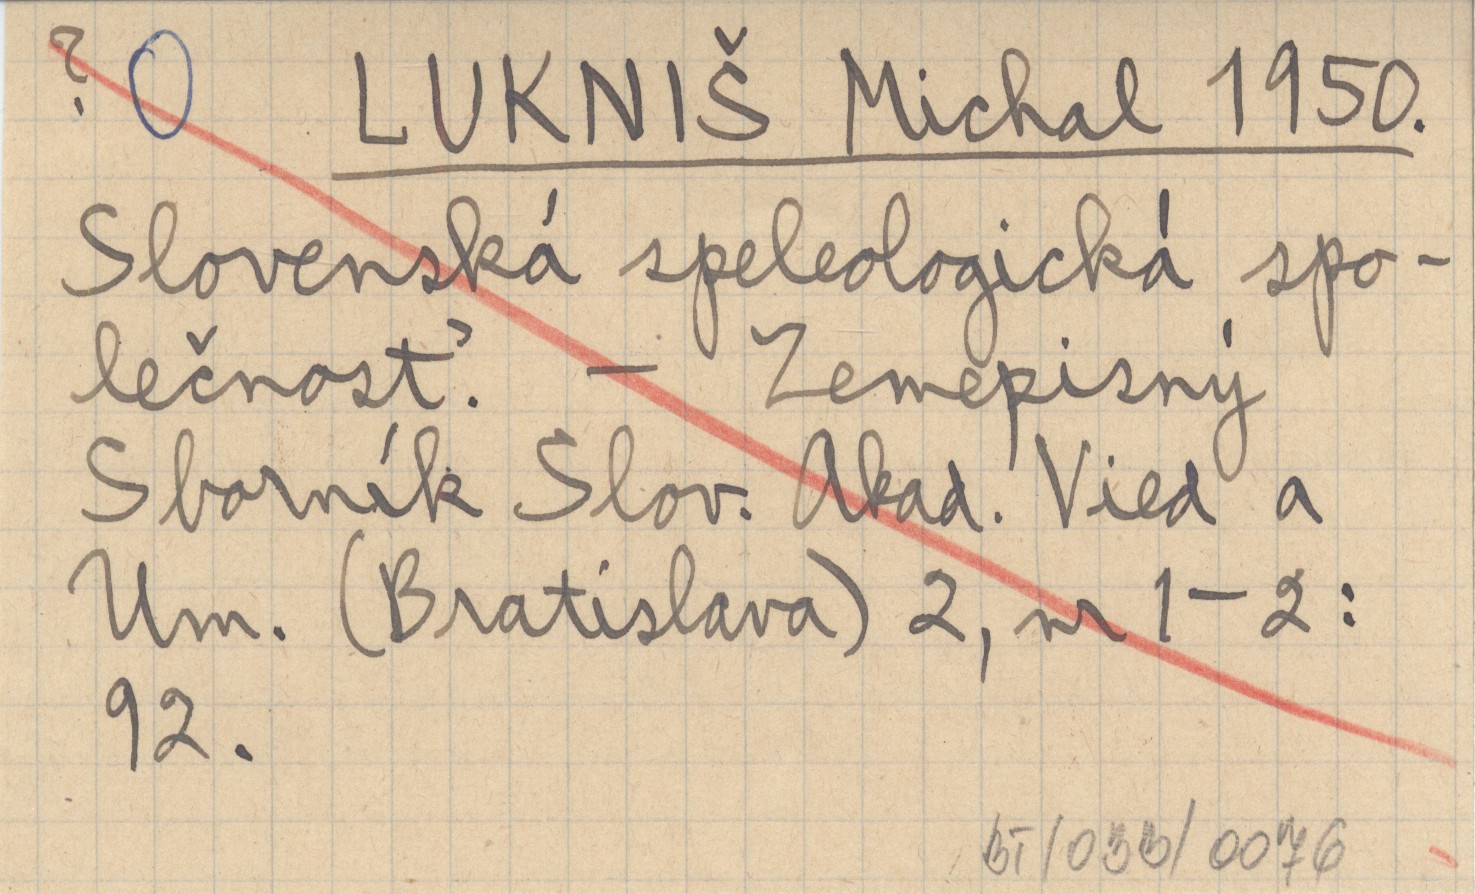 ? O LUKNIŠ Michal 1950.
Slovenská speleologická spo-
lečnosť. — Zemepisný
Sborník Slov. Akad. Vied a
Um. (Bratislava) 2, nr 1-2:
92.
BT/033/0076